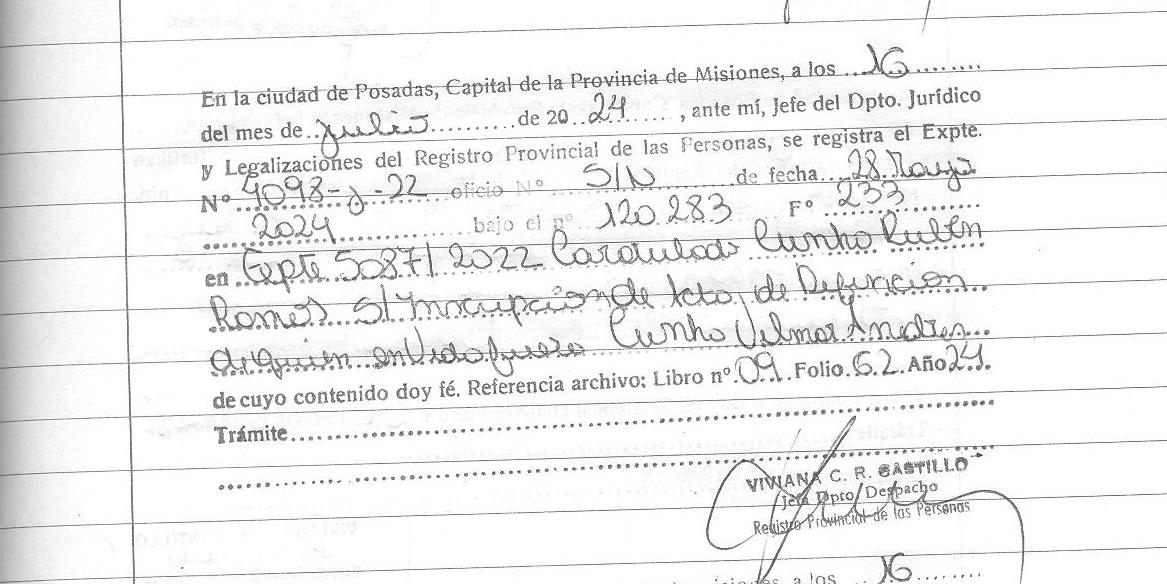 En la ciudad de Posadas, Capital de la Provincia de Misiones, a los ...16........
del mes de..Julio.............de 20..24......., ante mí, Jefe del Dpto. Jurídico
y Legalizaciones del Registro Provincial de las Personas, se registra el Expte.
Nº 4098-J-22 oficio Nº ...S/N......... de fecha...28.Mayo
2024............bajo el nº 120.283 Fº 233
en Expte 5087/2022 Caratulado Cunho Rubén
Ramos S/ Inscripción de Acta de Defunción
de quien en vida fuera Cunho Vilmar Andres...
de cuyo contenido doy fé. Referencia archivo: Libro nº.09..Folio.62.Año24.
Trámite
VIVIANA C. R. CASTILLO
Jefa Dpto Despacho
Registro Provincial de las Personas
a los ..16........